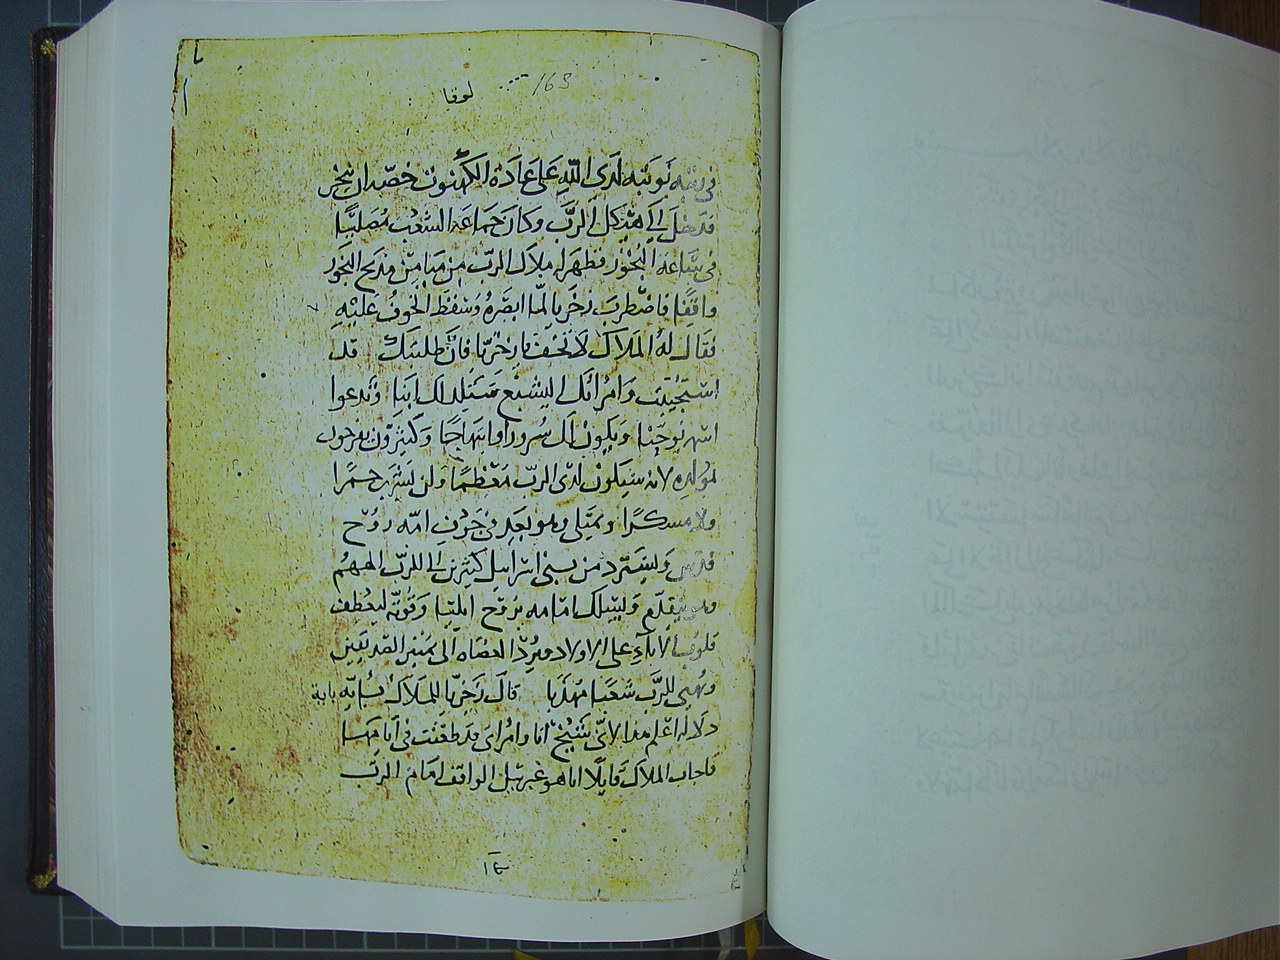 163
لوقا
في رتبه نوبته لدي الله علي عادة الكهنوت خصه ان يبخر
فدخل الي هيكل الرب وكان جماعة الشعب مصليا
في ساعة البخور فظهر له ملاك الرب من ميامن مذبح البخور
واقفا فاضطرب زخريا لما ابصره وسقط الخوف عليه
فقال له الملاك لا تخف يا زخريا فان طلبتك قد
استجيبت وامراتك اليشبع ستلد لك ابنا وتدعوا
اسمه يوحنا ويكون لك سرورا وابتهاجا وكثيرون يفرحون
بمولده لانه سيكون لدي الرب معظما ولن يشرب خمرا
ولا مسكرا ويمتلي وهو بعد في جوف امه روح
قدس وليسترد من بني اسرايل كثيرين الي الرب الههم
وهو يتقدم وليسلك امامه بروح ايليا وقوته ليعطف
قلوب الاباء علي الاولاد ويرد العصاه الي تمييز الصديقين
ويهيي للرب شعبا مهذبا قال زخريا للملاك باية
دلاله اعلم هذا لاني شيخ انا وامراتي قد طعنت في ايامها
فاجاب الملاك قايلا انا هو غبريل الواقف امام الرب